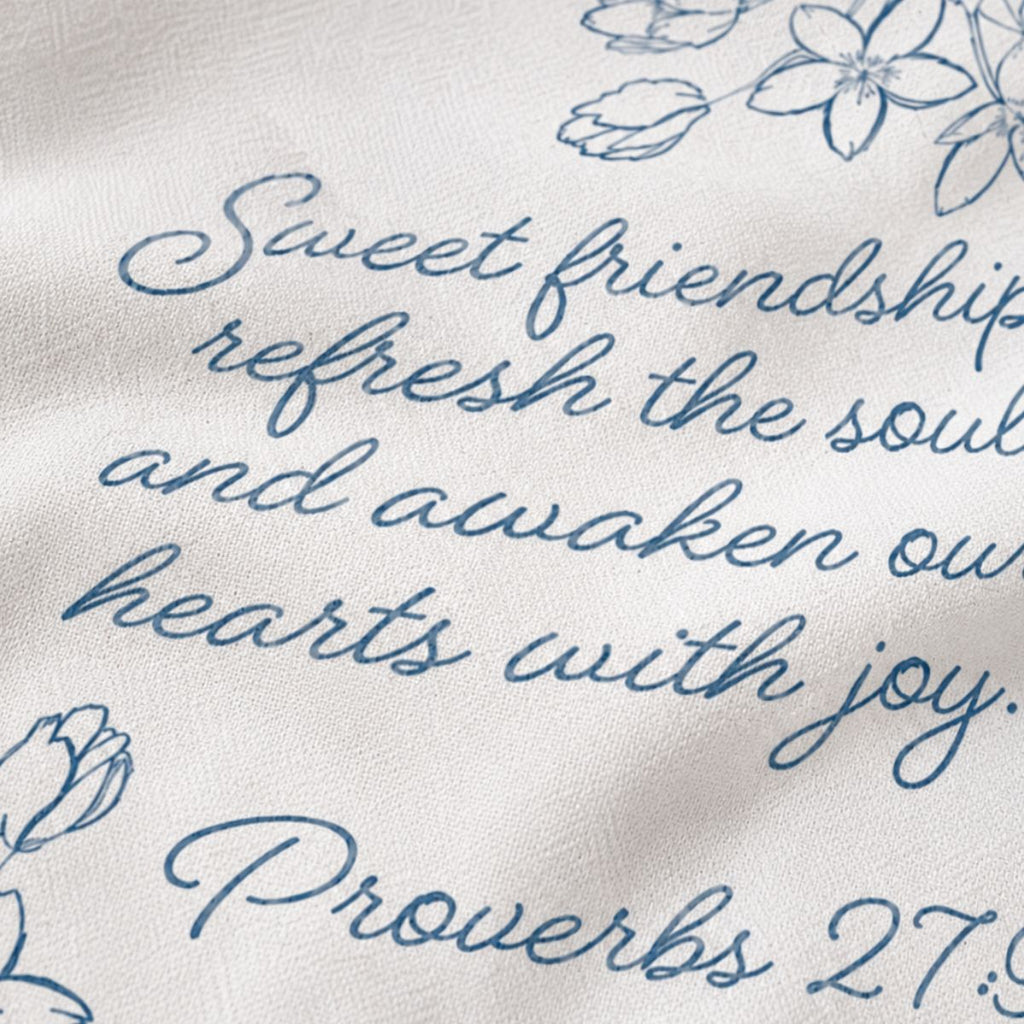 Sweet friendship
refresh the soul
and awaken our
hearts with joy.
Proverbs 27:9